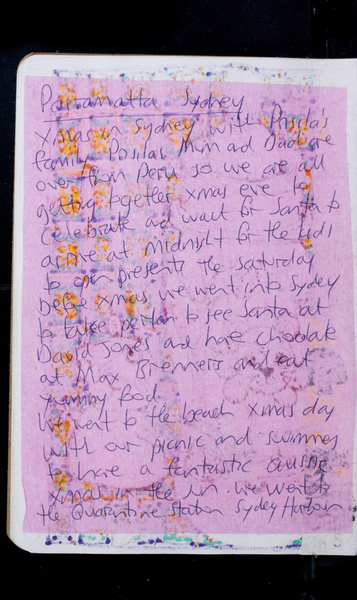 Parramatta Sydney
Xmas in Sydney with Prisila's
family. Prisilas mum ad Dad are
over from Peru so we are all
getting together xmas eve to
celebrate ad wait for Santa to
arrive at midnight for the kids
to open presents the saturday
before xmas we went into Sydney
to take to see Santa at
David Jones and have chocolate
at Max Brenners and eat
yummy food.
We went to the beach xmas day
with our picnic and swimmers
to have a fantastic aussie
xmas in the sun. we went to
the Quarantine Station Sydney Harbour